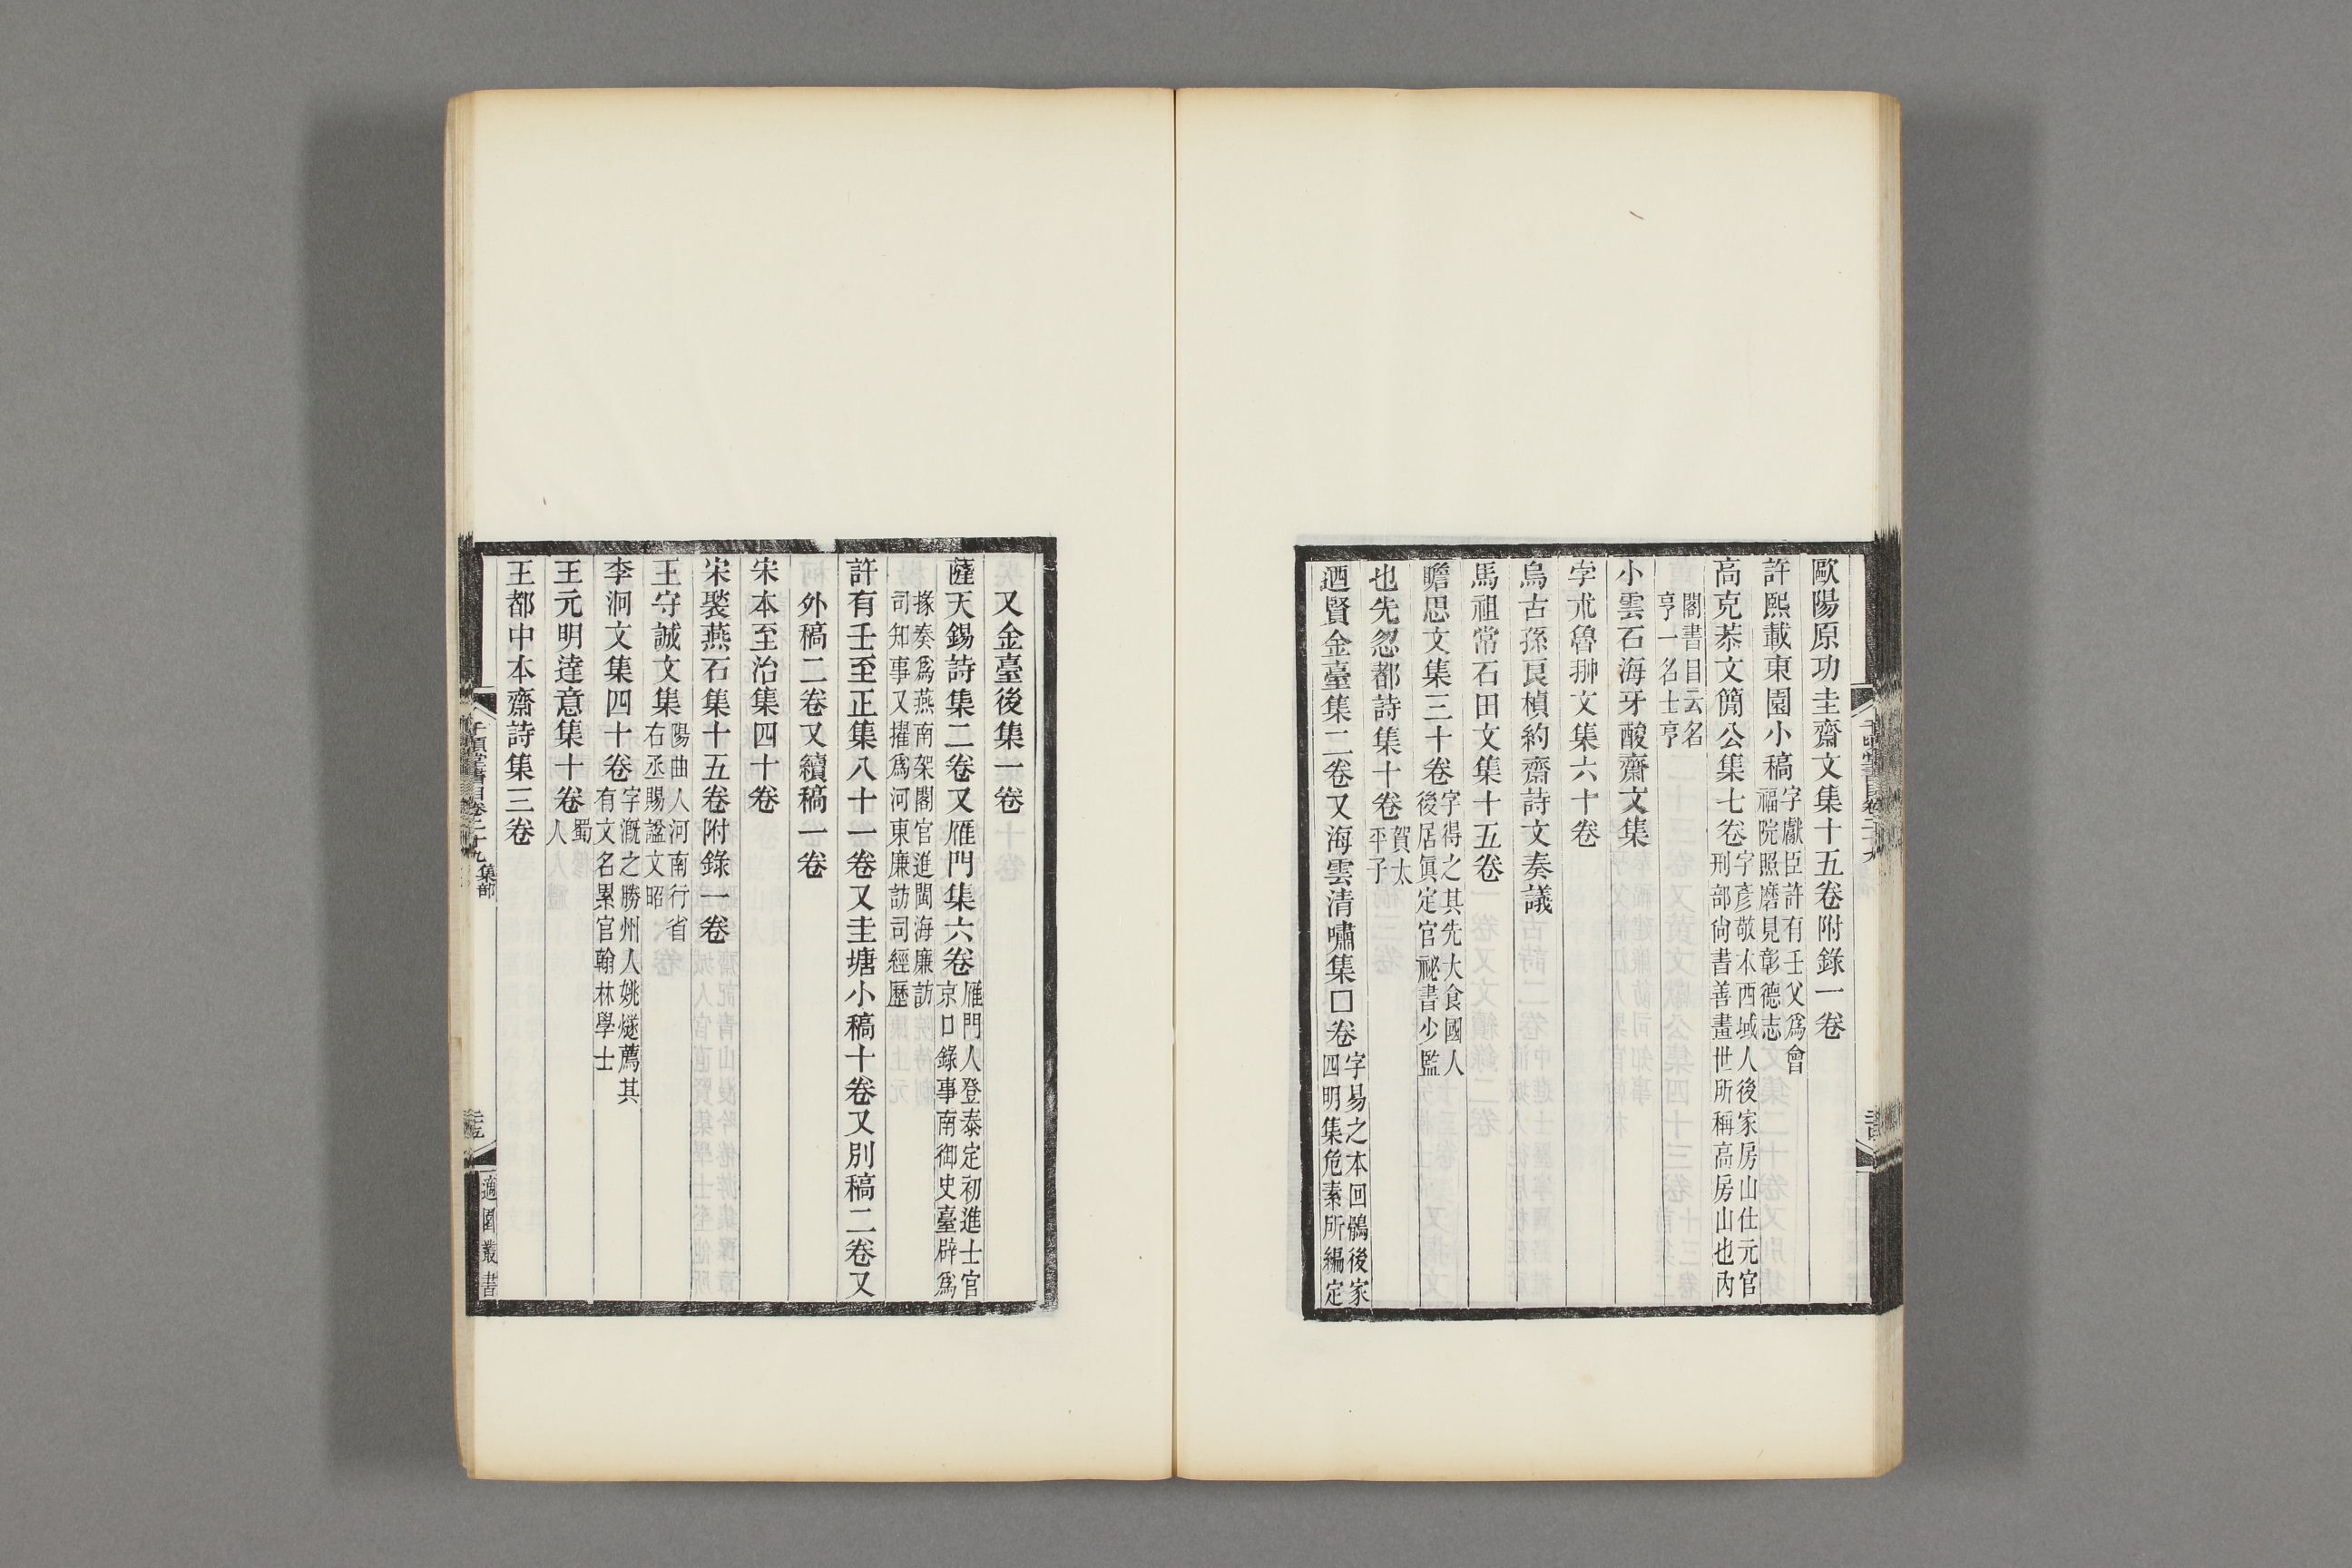 歐陽原功圭齋文集十五卷附錄一卷
許熙載東園小稿字獻臣許有壬父爲會福院照磨見彰德志
高克恭文簡公集七卷字彥敬本西域人後家房山仕元官刑部尙書善畫世所稱高房山也內
閣書目云名亨一名士亨
小雲石海牙酸齋文集
孛朮魯翀文集六十卷
烏古孫良楨約齋詩文奏議
馬祖常石田文集十五卷
瞻思文集三十卷字得之其先大食國人後居眞定官祕書少監
也先忽都詩集十卷賀太平子
迺賢金臺集二卷又海雲清嘯集□卷字易之本回鶻後家四明集危素所編定
又金臺後集一卷
薩天錫詩集二卷又雁門集六卷雁門人登泰定初進士官京口錄事南御史臺辟爲
掾奏爲燕南架閣官進閩海廉訪司知事又擢爲河東廉訪司經歷
許有壬至正集八十一卷又圭塘小稿十卷又別稿二卷又
外稿二卷又續稿一卷
宋本至治集四十卷
宋褧燕石集十五卷附錄一卷
王守誠文集陽曲人河南行省右丞賜諡文昭
李泂文集四十卷字漑之勝州人姚燧薦其有文名累官翰林學士
王元明達意集十卷蜀人
王都中本齋詩集三卷
千頃堂書目卷二十九 集部
適園叢書